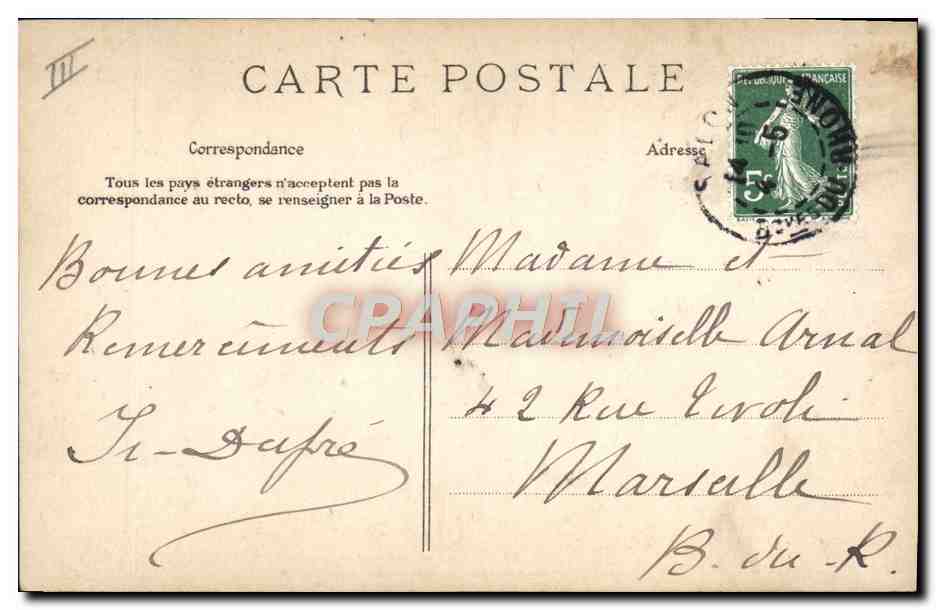 III
CARTE POSTALE
Correspondance
Adresse
Tous les pays étrangers n'acceptent pas la
correspondance au recto, se renseigner à la Poste.
REPUBLIQUE FRANÇAISE
5c
RHONE
Bonnes amitiés
Remerciments
Dupré
Madame et
Mademoiselle Arnal
42 Rue Tivoli
Marseille
B. du R.
CPAPHIL